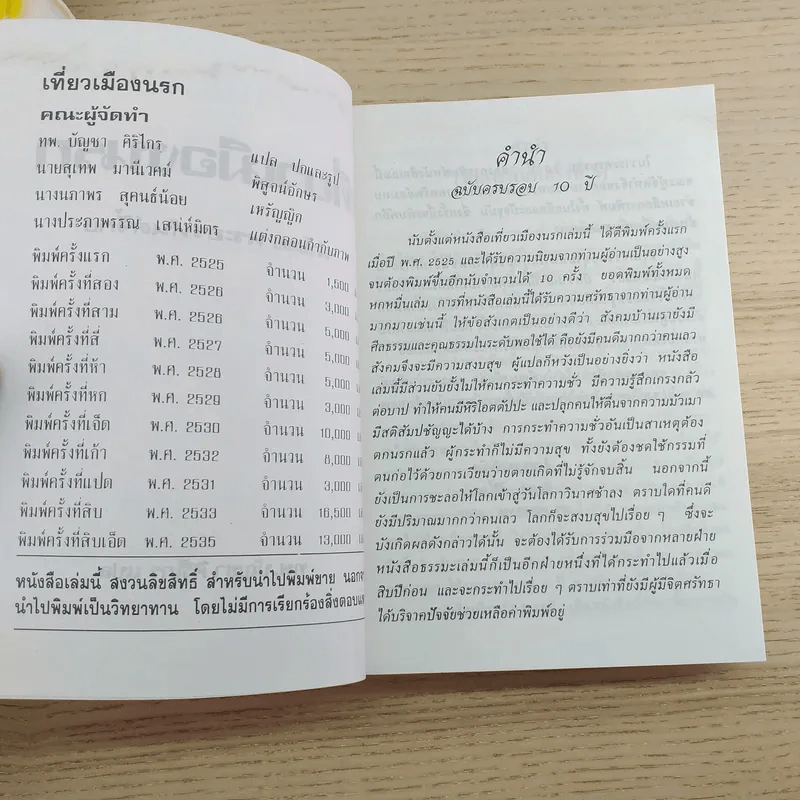 เที่ยวเมืองนรก
คณะผู้จัดทำ
ทพ. บัญชา ศิริไกร แปล ปกและรูป
นายสุเทพ มานีเวคม์ พิสูจน์อักษร
นางนภาพร สุคนธ์น้อย เหรัญญิก
นางประภาพรรณ เสน่ห์มิตร แต่งกลอนกำกับภาพ
พิมพ์ครั้งแรก พ.ศ. 2525 จำนวน 1,500
พิมพ์ครั้งที่สอง พ.ศ. 2526 จำนวน 3,000
พิมพ์ครั้งที่สาม พ.ศ. 2526 จำนวน 5,000
พิมพ์ครั้งที่สี่ พ.ศ. 2527 จำนวน 5,000
พิมพ์ครั้งที่ห้า พ.ศ. 2528 จำนวน 5,000
พิมพ์ครั้งที่หก พ.ศ. 2529 จำนวน 3,000
พิมพ์ครั้งที่เจ็ด พ.ศ. 2530 จำนวน 10,000
พิมพ์ครั้งที่เก้า พ.ศ. 2532 จำนวน 8,000
พิมพ์ครั้งที่แปด พ.ศ. 2531 จำนวน 3,000
พิมพ์ครั้งที่สิบ พ.ศ. 2533 จำนวน 16,500
พิมพ์ครั้งที่สิบเอ็ด พ.ศ. 2535 จำนวน 13,000
หนังสือเล่มนี้ สงวนลิขสิทธิ์ สำหรับนำไปพิมพ์ขาย
นำไปพิมพ์เป็นวิทยาทาน โดยไม่มีการเรียกร้องสิ่งตอบแ
คำนำ
ฉบับครบรอบ 10 ปี
นับตั้งแต่หนังสือเที่ยวเมืองนรกเล่มนี้ ได้ตีพิมพ์ครั้งแรก
เมื่อปี พ.ศ. 2525 และได้รับความนิยมจากท่านผู้อ่านเป็นอย่างสูง
จนต้องพิมพ์ขึ้นอีกนับจำนวนได้ 10 ครั้ง ยอดพิมพ์ทั้งหมด
หกหมื่นเล่ม การที่หนังสือเล่มนี้ได้รับความศรัทธาจากท่านผู้อ่าน
มากมายเช่นนี้ ให้ข้อสังเกตเป็นอย่างดีว่า สังคมบ้านเรายังมี
ศีลธรรมและคุณธรรมในระดับพอใช้ได้ คือยังมีคนดีมากกว่าคนเลว
สังคมจึงจะมีความสงบสุข ผู้แปลก็หวังเป็นอย่างยิ่งว่า หนังสือ
เล่มนี้มีส่วนยับยั้งไม่ให้คนกระทำความชั่ว มีความรู้สึกเกรงกลัว
ต่อบาป ทำให้คนมีหิริโอตตัปปะ และปลุกคนให้ตื่นจากความมัวเมา
มีสติสัมปชัญญะได้บ้าง การกระทำความชั่วอันเป็นสาเหตุต้อง
ตกนรกแล้ว ผู้กระทำก็ไม่มีความสุข ทั้งยังต้องชดใช้กรรมที่
ตนก่อไว้ด้วยการเวียนว่ายตายเกิดที่ไม่รู้จักจบสิ้น นอกจากนี้
ยังเป็นการชะลอให้โลกเข้าสู่วันโลกาวินาศช้าลง ตราบใดที่คนดี
ยังมีปริมาณมากกว่าคนเลว โลกก็จะสงบสุขไปเรื่อย ๆ ซึ่งจะ
บังเกิดผลดังกล่าวได้นั้น จะต้องได้รับการร่วมมือจากหลายฝ่าย
หนังสือธรรมะเล่มนี้ก็เป็นอีกฝ่ายหนึ่งที่ได้กระทำไปแล้วเมื่อ
สิบปีก่อน และจะกระทำไปเรื่อย ๆ ตราบเท่าที่ยังมีผู้มีจิตศรัทธา
ได้บริจาคปัจจัยช่วยเหลือค่าพิมพ์อยู่